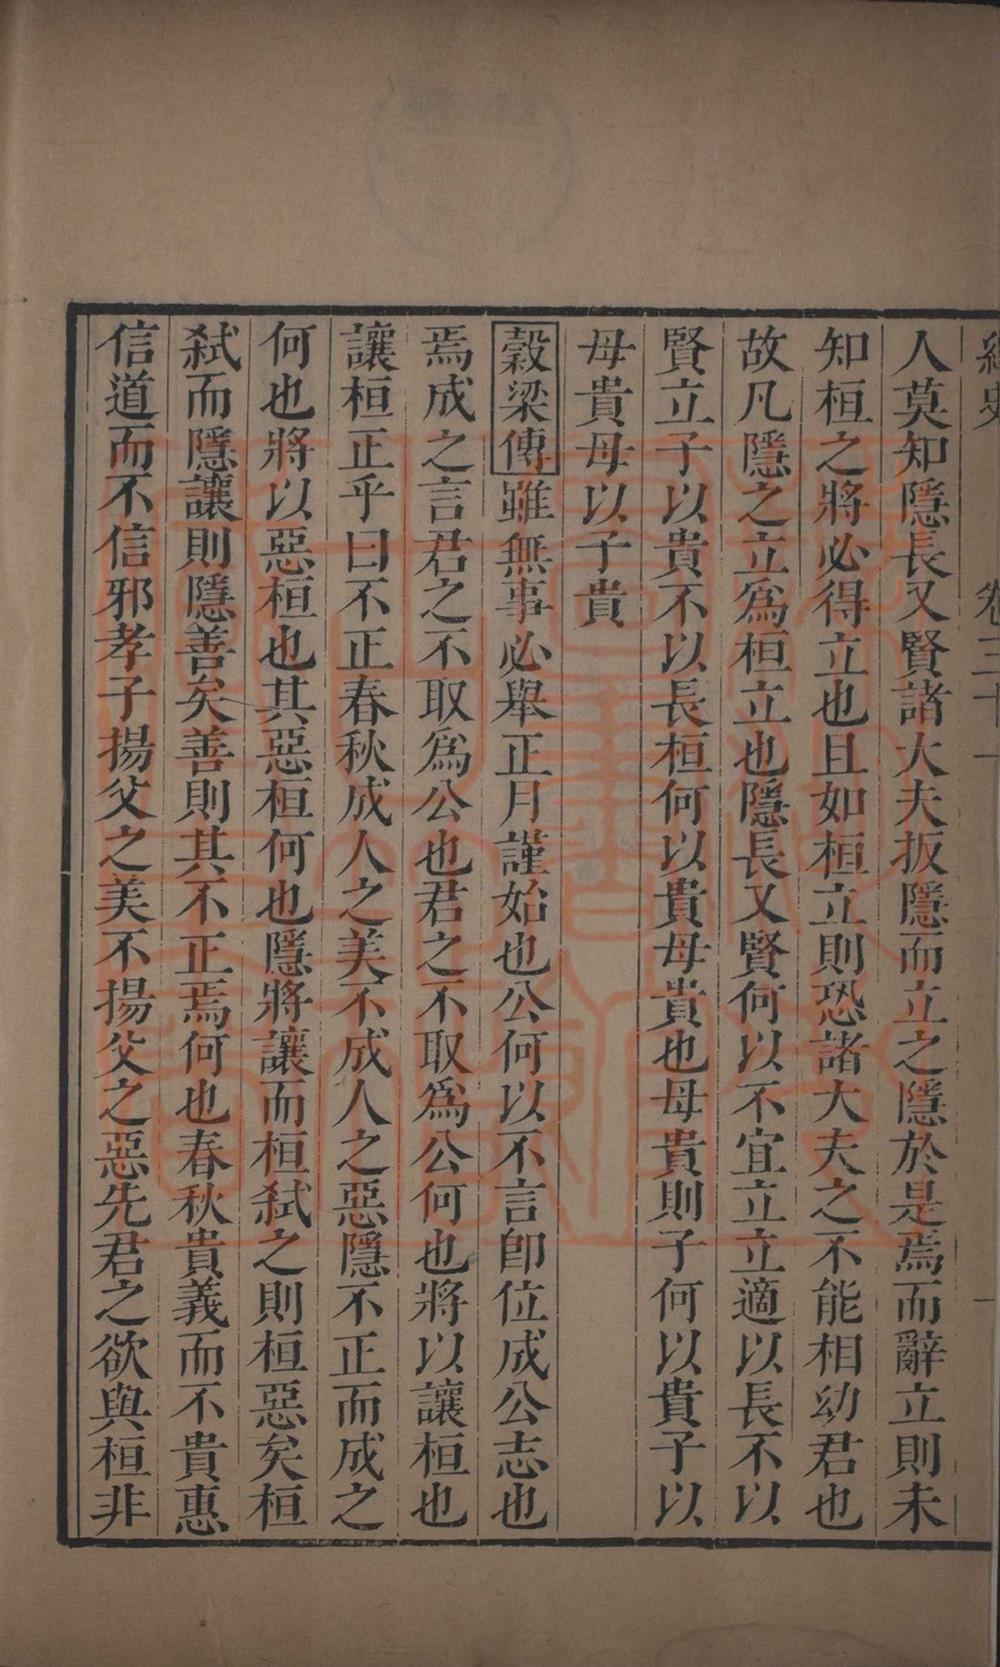 繹史 卷三十一 一
人莫知隱長又賢諸大夫扳隱而立之隱於是焉而辭立則未
知桓之將必得立也且如桓立則恐諸大夫之不能相幼君也
故凡隱之立爲桓立也隱長又賢何以不宜立立適以長不以
賢立子以貴不以長桓何以貴母貴也母貴則子何以貴子以
母貴母以子貴
穀梁傳雖無事必舉正月謹始也公何以不言卽位成公志也
焉成之言君之不取爲公也君之不取爲公何也將以讓桓也
讓桓正乎曰不正春秋成人之美不成人之惡隱不正而成之
何也將以惡桓也其惡桓何也隱將讓而桓弑之則桓惡矣桓
弑而隱讓則隱善矣善則其不正焉何也春秋貴義而不貴惠
信道而不信邪孝子揚父之美不揚父之惡先君之欲與桓非